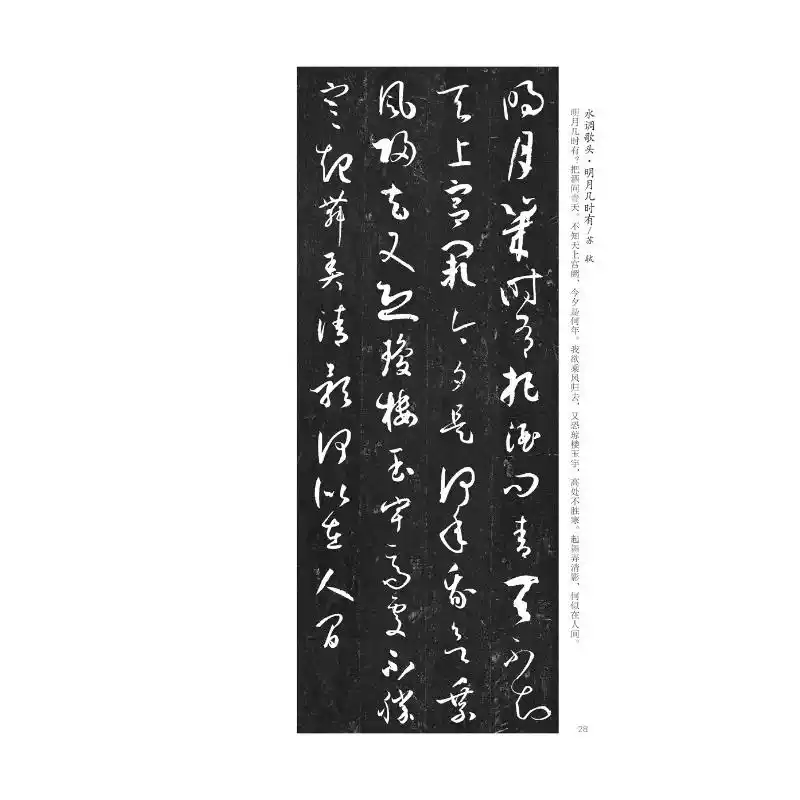 水调歌头·明月几时有/苏轼
明月几时有？把酒问青天。不知天上宫阙，今夕是何年。我欲乘风归去，又恐琼楼玉宇，高处不胜寒。起舞弄清影，何似在人间。
明月几时有把酒问青天不知
天上宫阙今夕是何年我欲乘
风归去又恐琼楼玉宇高处不胜
寒起舞弄清影何似在人间
28